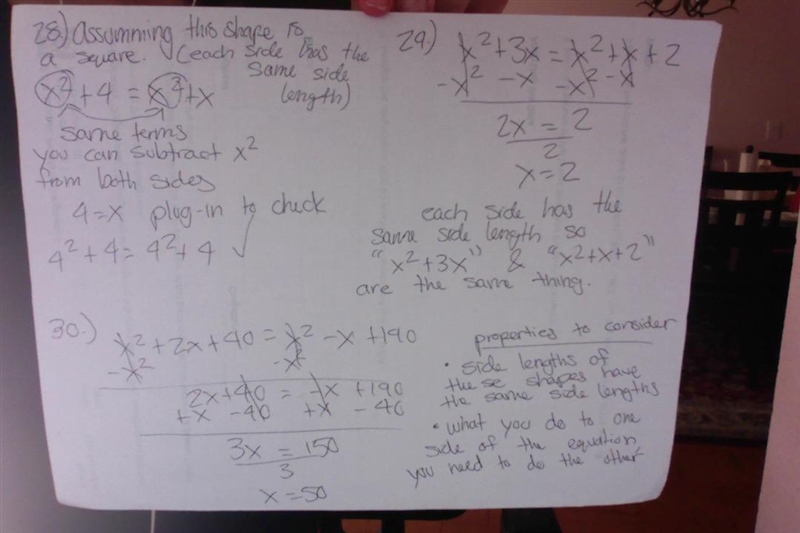 28.) Assumming this shape is
a square. (each side has the
same side
length)
x² + 4 = x² + x
same terms
you can subtract x²
from both sides
4 = x plug-in to check
4² + 4 = 4² + 4 ✓
29.) x² + 3x = x² + x + 2
-x² - x -x² - x
2x = 2
2
x = 2
each side has the
same side length so
"x² + 3x" & "x² + x + 2"
are the same thing.
30.) x² + 2x + 40 = x² - x + 190
-x² -x²
2x + 40 = -x + 190
+x - 40 +x - 40
3x = 150
3
x = 50
properties to consider
• side lengths of
these shapes have
the same side lengths
• what you do to one
side of the equation
you need to do the other